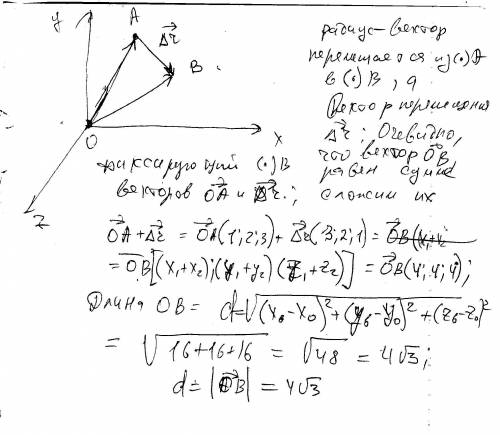 y
A
Δr
B.
O
x
z
радиус-вектор
перемещается из (·) A
в (·) B, а
Вектор перемещения
Δr; Очевидно,
что вектор OB
фиксирующий (·) B равен сумме
векторов OA и Δr; сложим их
OA + Δr = OA(1;2;3) + Δr(3;2;1) = OB(x₁+x₂
= OB[(x₁+x₂);(y₁+y₂)(z₁+z₂)] = OB(4;4;4);
Длина OB = d=√(x_B-x_O)²+(y_B-y_O)²+(z_B-z_O)²
= √16+16+16 = √48 = 4√3;
d = |OB| = 4√3